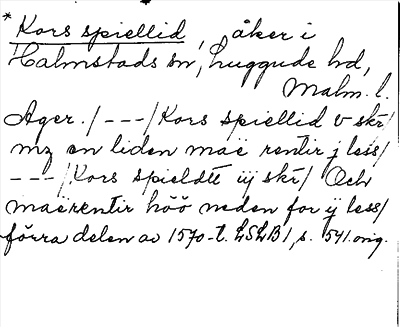 * Kors spiellid, åker i
Halmstads sn, Luggude hd,
Malm. l.
Ager. / --- / Kors spiellid v skr/
mz en liden maë rentir j less/
--- / Kors spieldtt iij skr/ Och
maërentir höö neden for ij less/
förra delen av 1570-t. LSLB1, s. 541. orig.